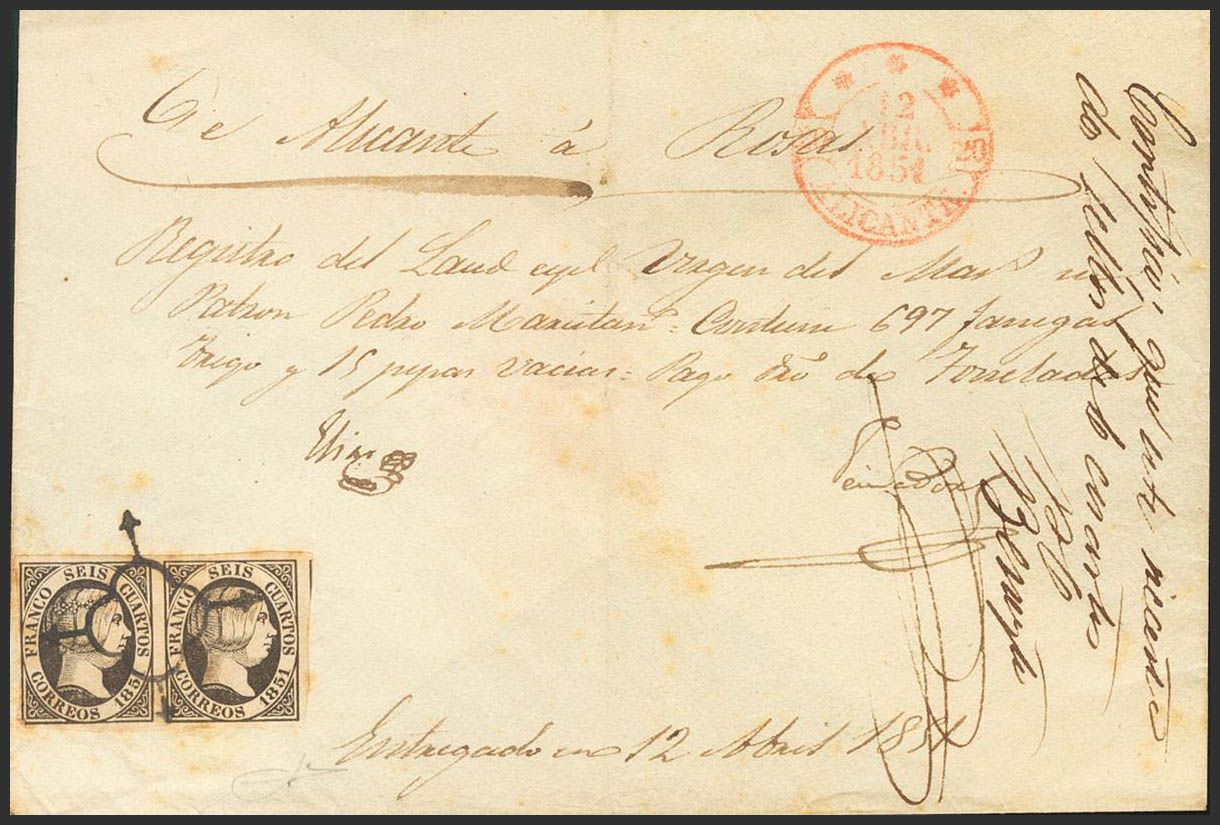 De Alicante á Rosas.
Registro del Laud espl Virgen del Mar su
Patron Pedro Maristan = Contiene 697 fanegas
Trigo y 15 pipas vacias = Pago dro de Toneladas
Entregado en 12 Abril 1851
12
ABR.
1851
ALICANTE.
FRANCO SEIS CUARTOS
CORREOS 1851
FRANCO SEIS CUARTOS
CORREOS 1851
que
de sellos de 6 cuartos